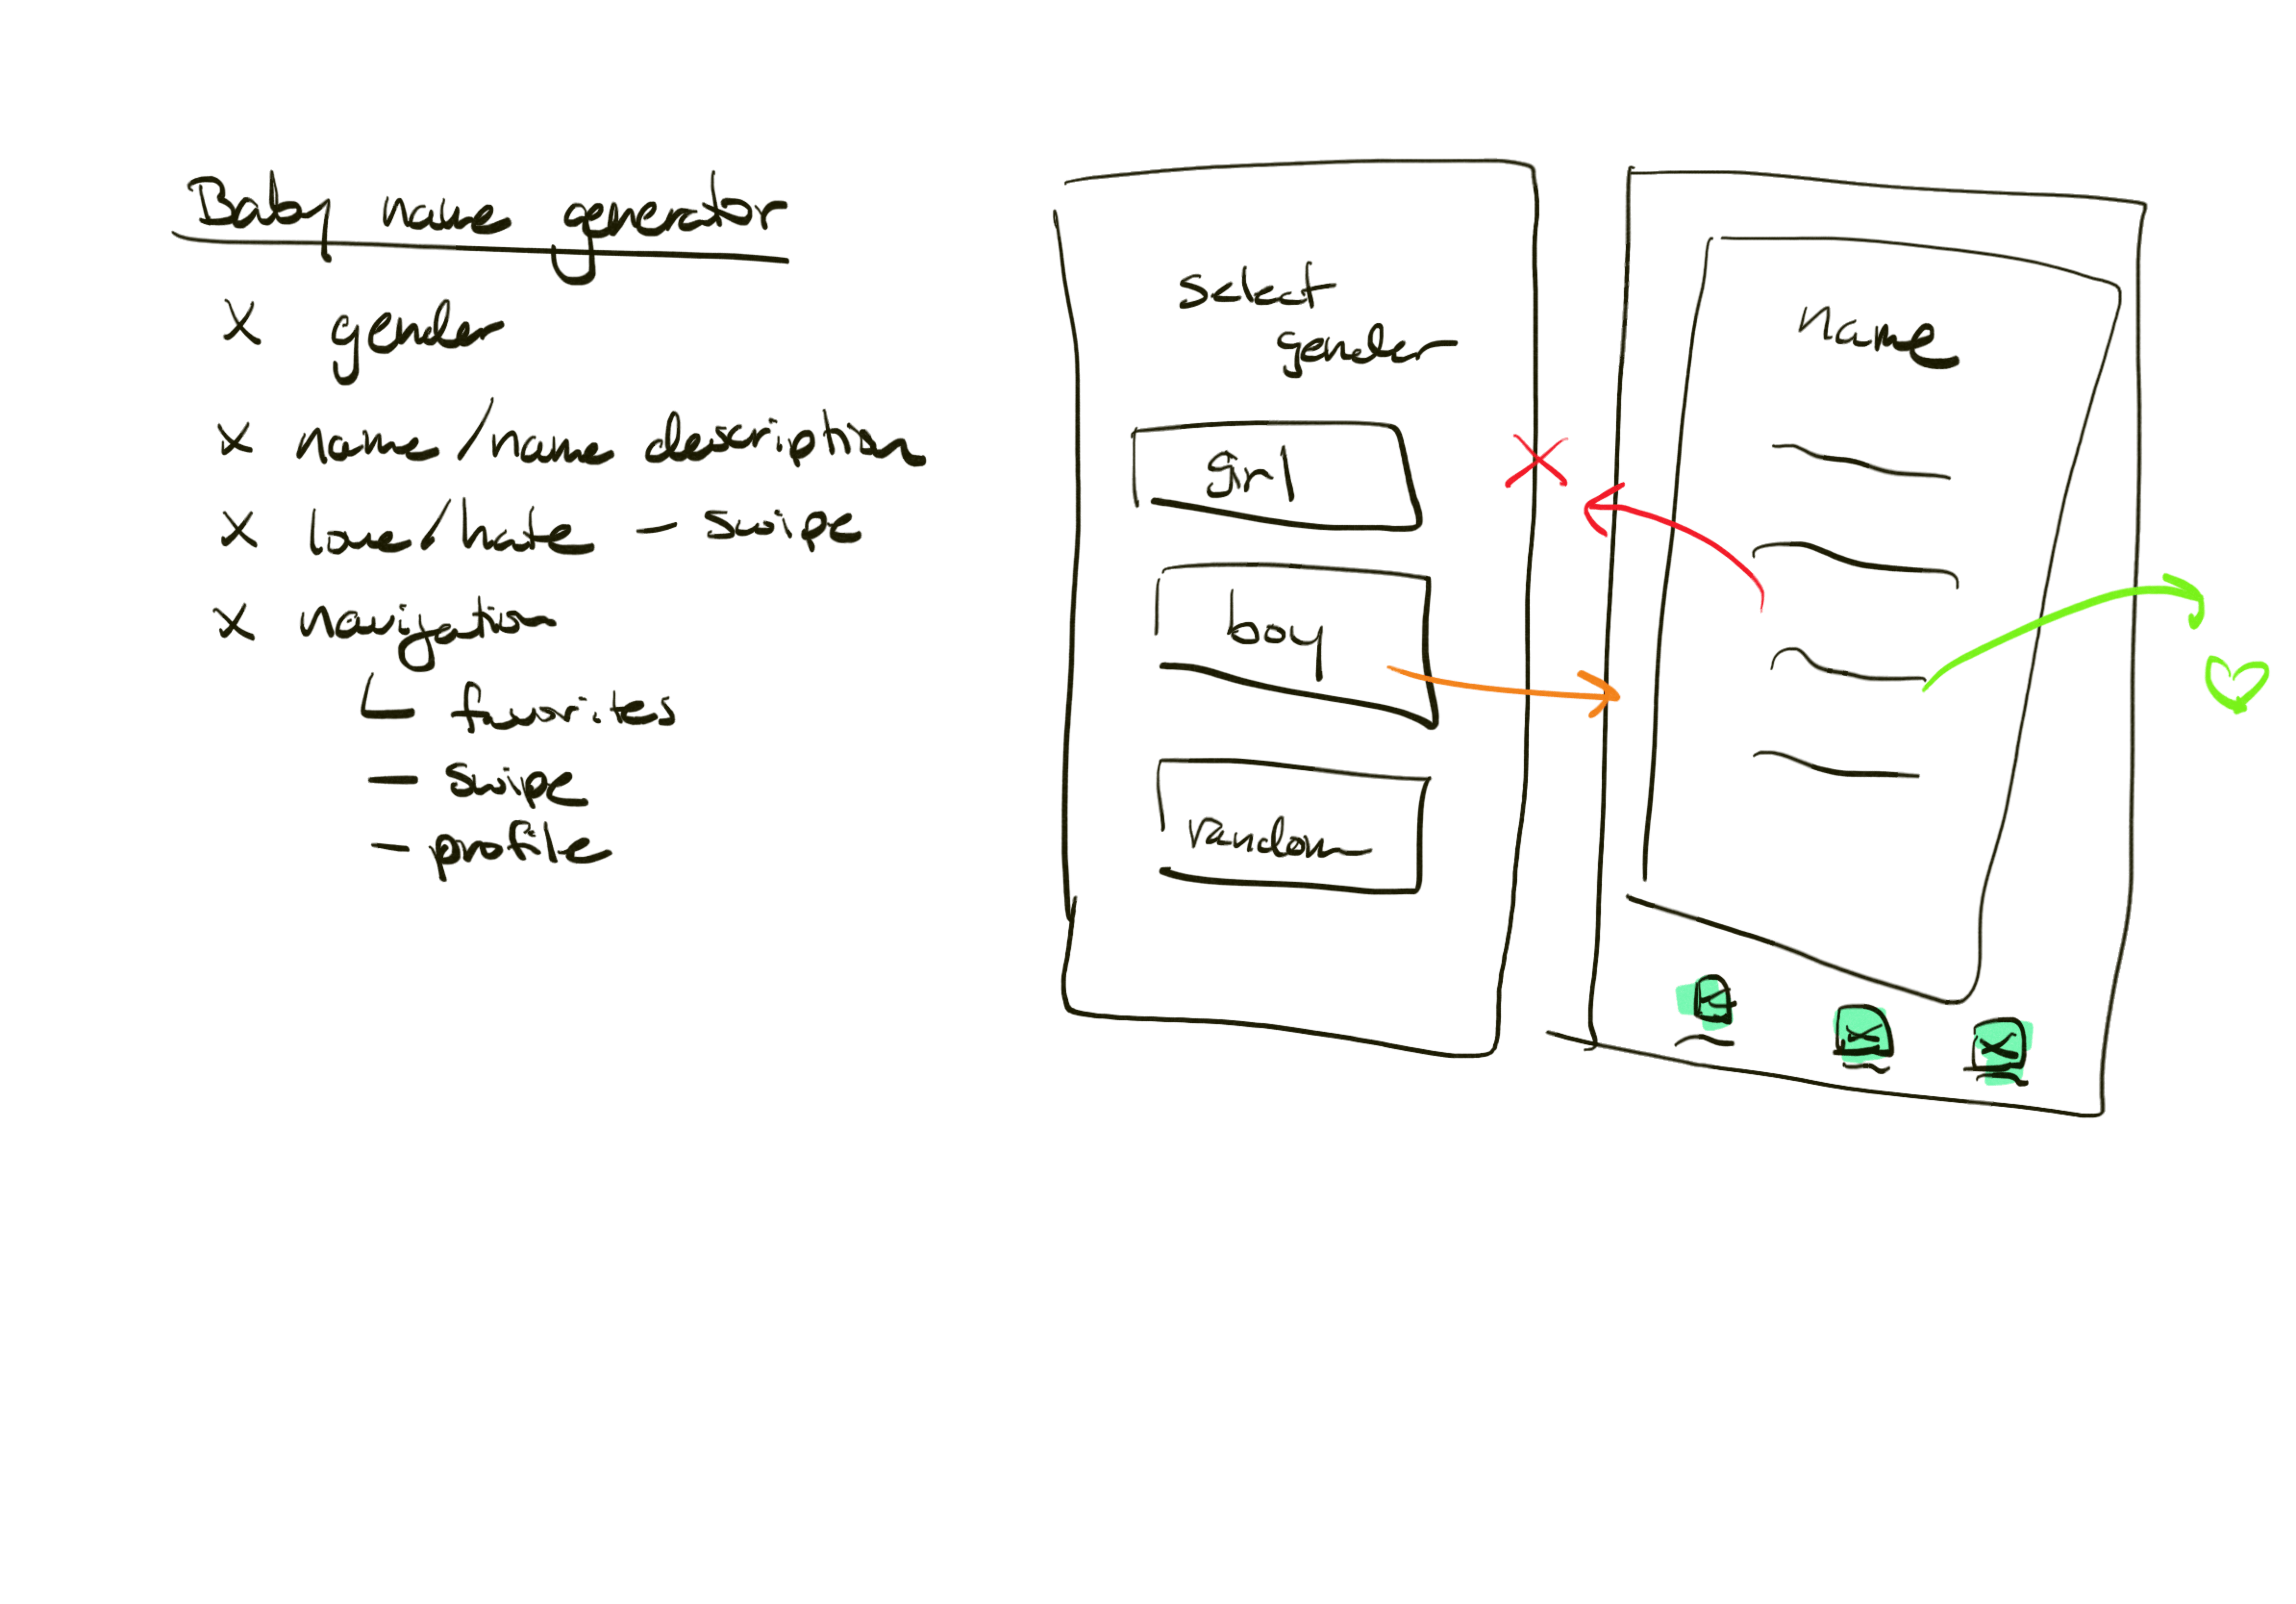 Baby name generator
x gender
x name/name description
x love/hate - swipe
x navigation
favorites
- swipe
- profile
select
gender
girl
boy
random
name